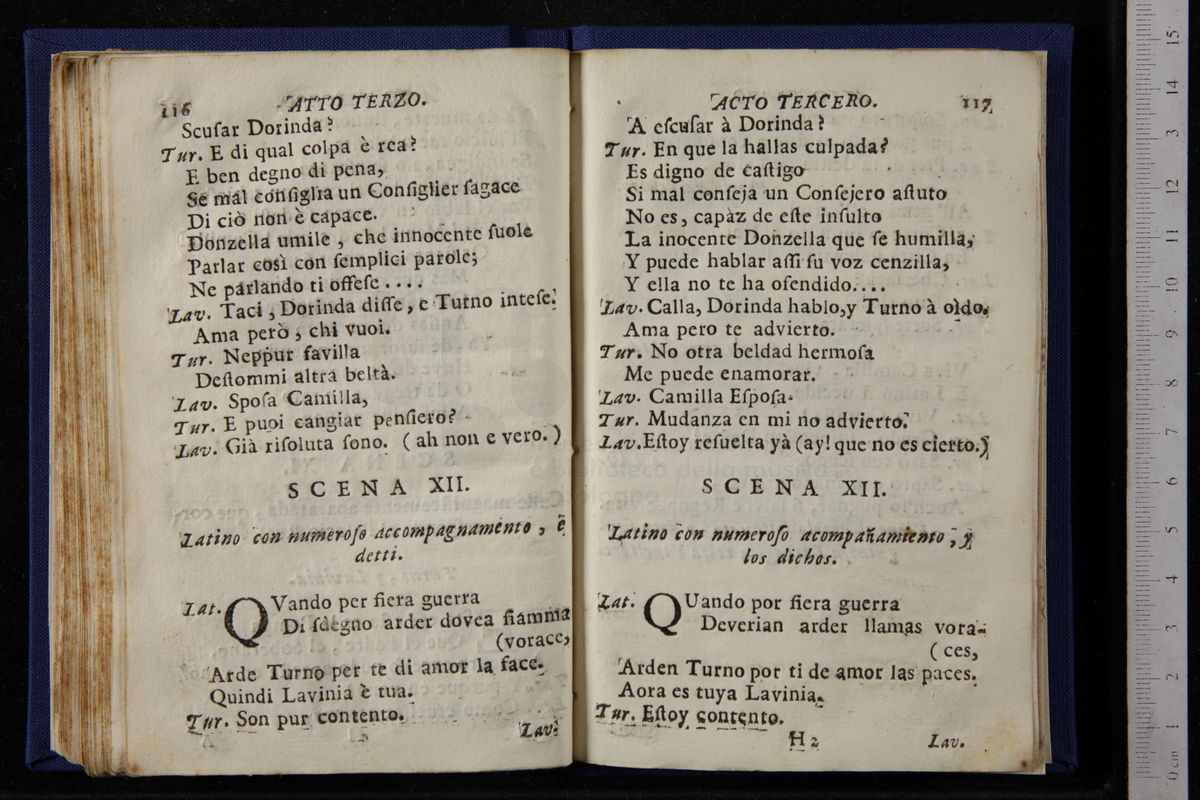 116 ATTO TERZO.
Scuſar Dorinda?
Tur. E di qual colpa è rea?
E ben degno di pena,
Se mal conſiglia un Conſiglier ſagace
Di ciò non è capace.
Donzella umile, che innocente ſuole
Parlar così con ſemplici parole;
Ne parlando ti offeſe....
Lav. Taci, Dorinda diſſe, e Turno inteſe.
Ama però, chi vuoi.
Tur. Neppur favilla
Deſtommi altra beltà.
Lav. Spoſa Camilla,
Tur. E puoi cangiar penſiero?
Lav. Già riſoluta ſono. (ah non e vero.)
SCENA XII.
Latino con numeroſo accompagnamento, è
detti.
Lat. QVando per fiera guerra
Di ſdegno arder dovea fiamma
(vorace,
Arde Turno per te di amor la face.
Quindi Lavinia è tua.
Tur. Son pur contento.
Lav.
ACTO TERCERO. 117
A eſcuſar à Dorinda?
Tur. En que la hallas culpada?
Es digno de caſtigo
Si mal conſeja un Conſejero aſtuto
No es, capàz de eſte inſulto
La inocente Donzella que ſe humilla,
Y puede hablar aſſi ſu voz cenzilla,
Y ella no te ha ofendido....
Lav. Calla, Dorinda hablo, y Turno à oìdo.
Ama pero te advierto.
Tur. No otra beldad hermoſa
Me puede enamorar.
Lav. Camilla Eſpoſa.
Tur. Mudanza en mi no advierto.
Lav. Eſtoy reſuelta yà (ay! que no es cierto.)
SCENA XII.
Latino con numeroſo acompañamiento, y
los dichos.
Lat. QUando por fiera guerra
Deverian arder llamas vora-
(ces,
Arden Turno por ti de amor las paces.
Aora es tuya Lavinia.
Tur. Eſtoy contento.
H 2 Lav.
15
14
13
12
11
10
9
8
7
6
5
4
3
2
1
0 cm